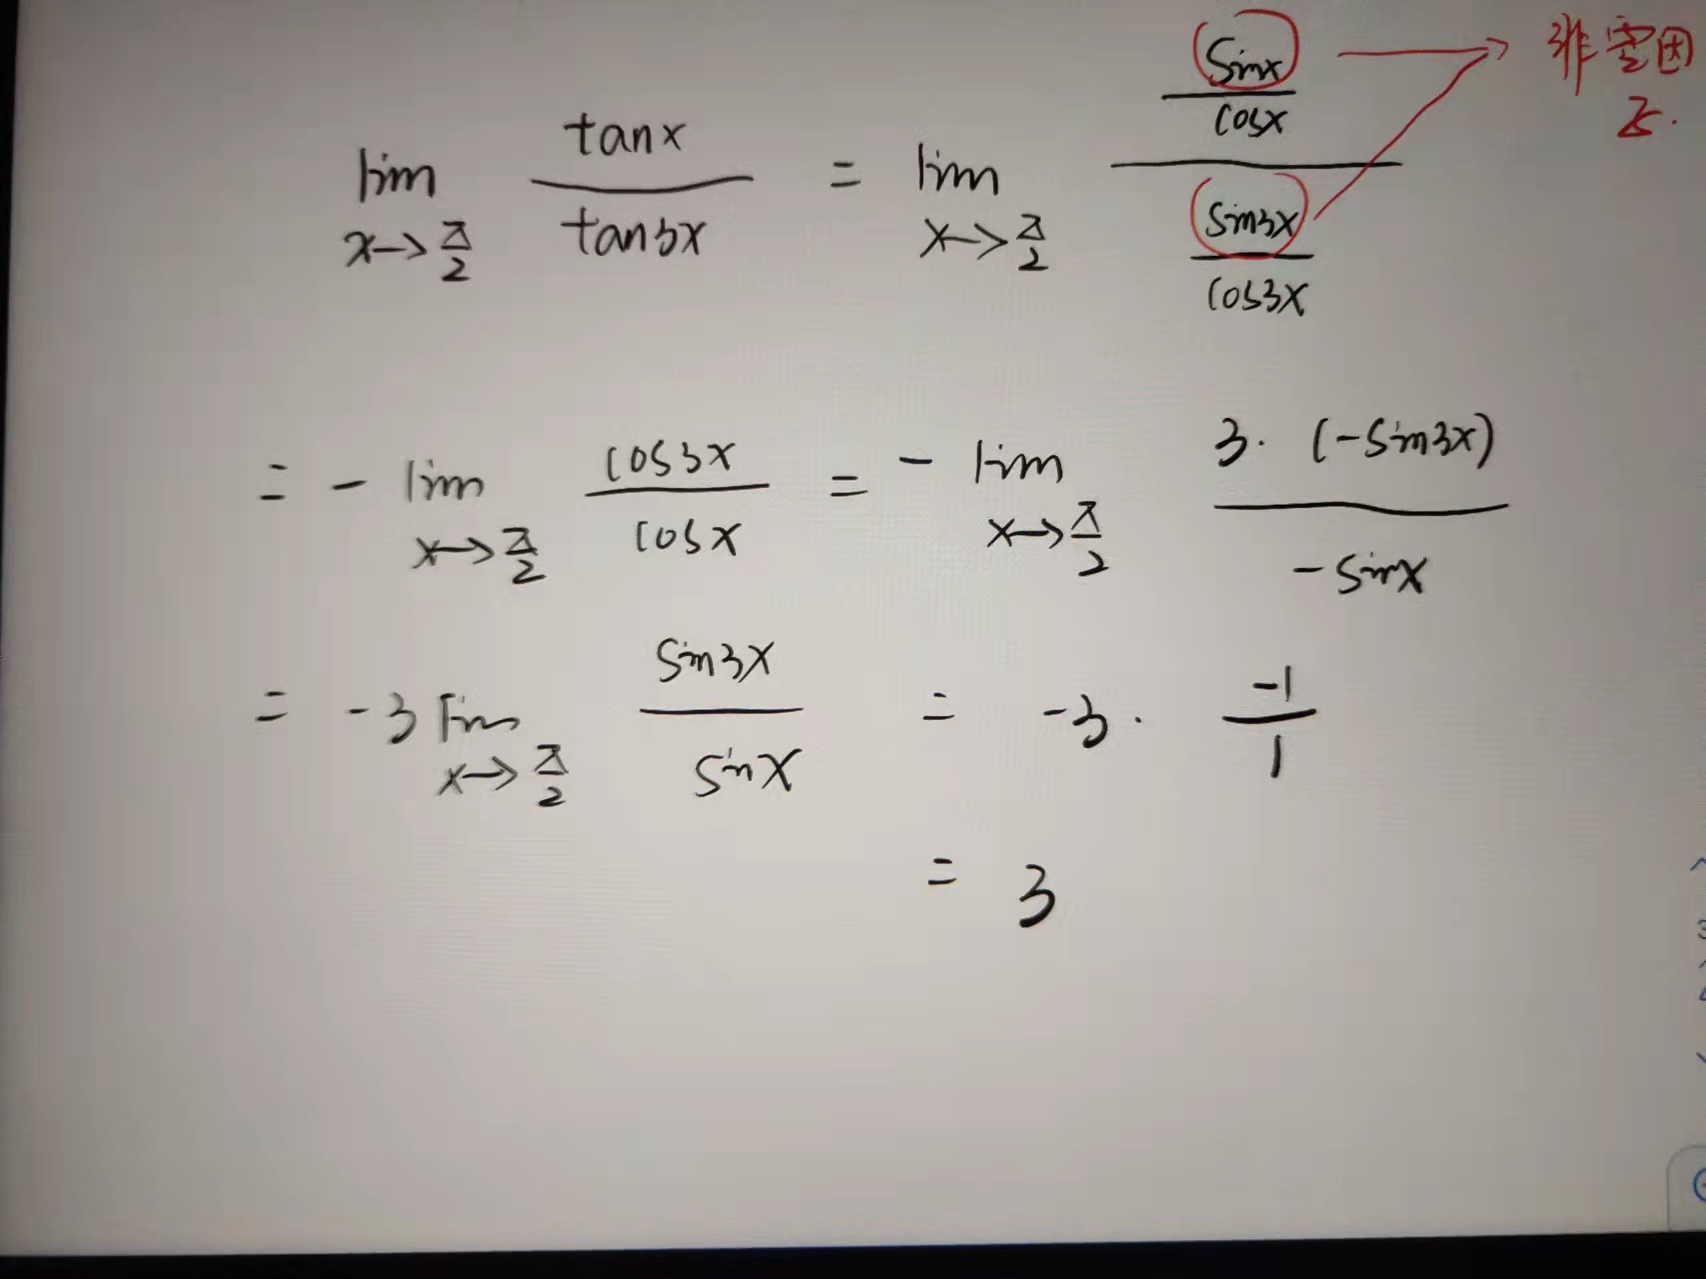 lim x→π/2 tanx / tan3x = lim x→π/2 (sinx / cosx) / (sin3x / cos3x) → 非零因子.
= - lim x→π/2 cos3x / cosx = - lim x→π/2 3·(-sin3x) / -sinx
= -3 lim x→π/2 sin3x / sinx = -3· -1 / 1
= 3